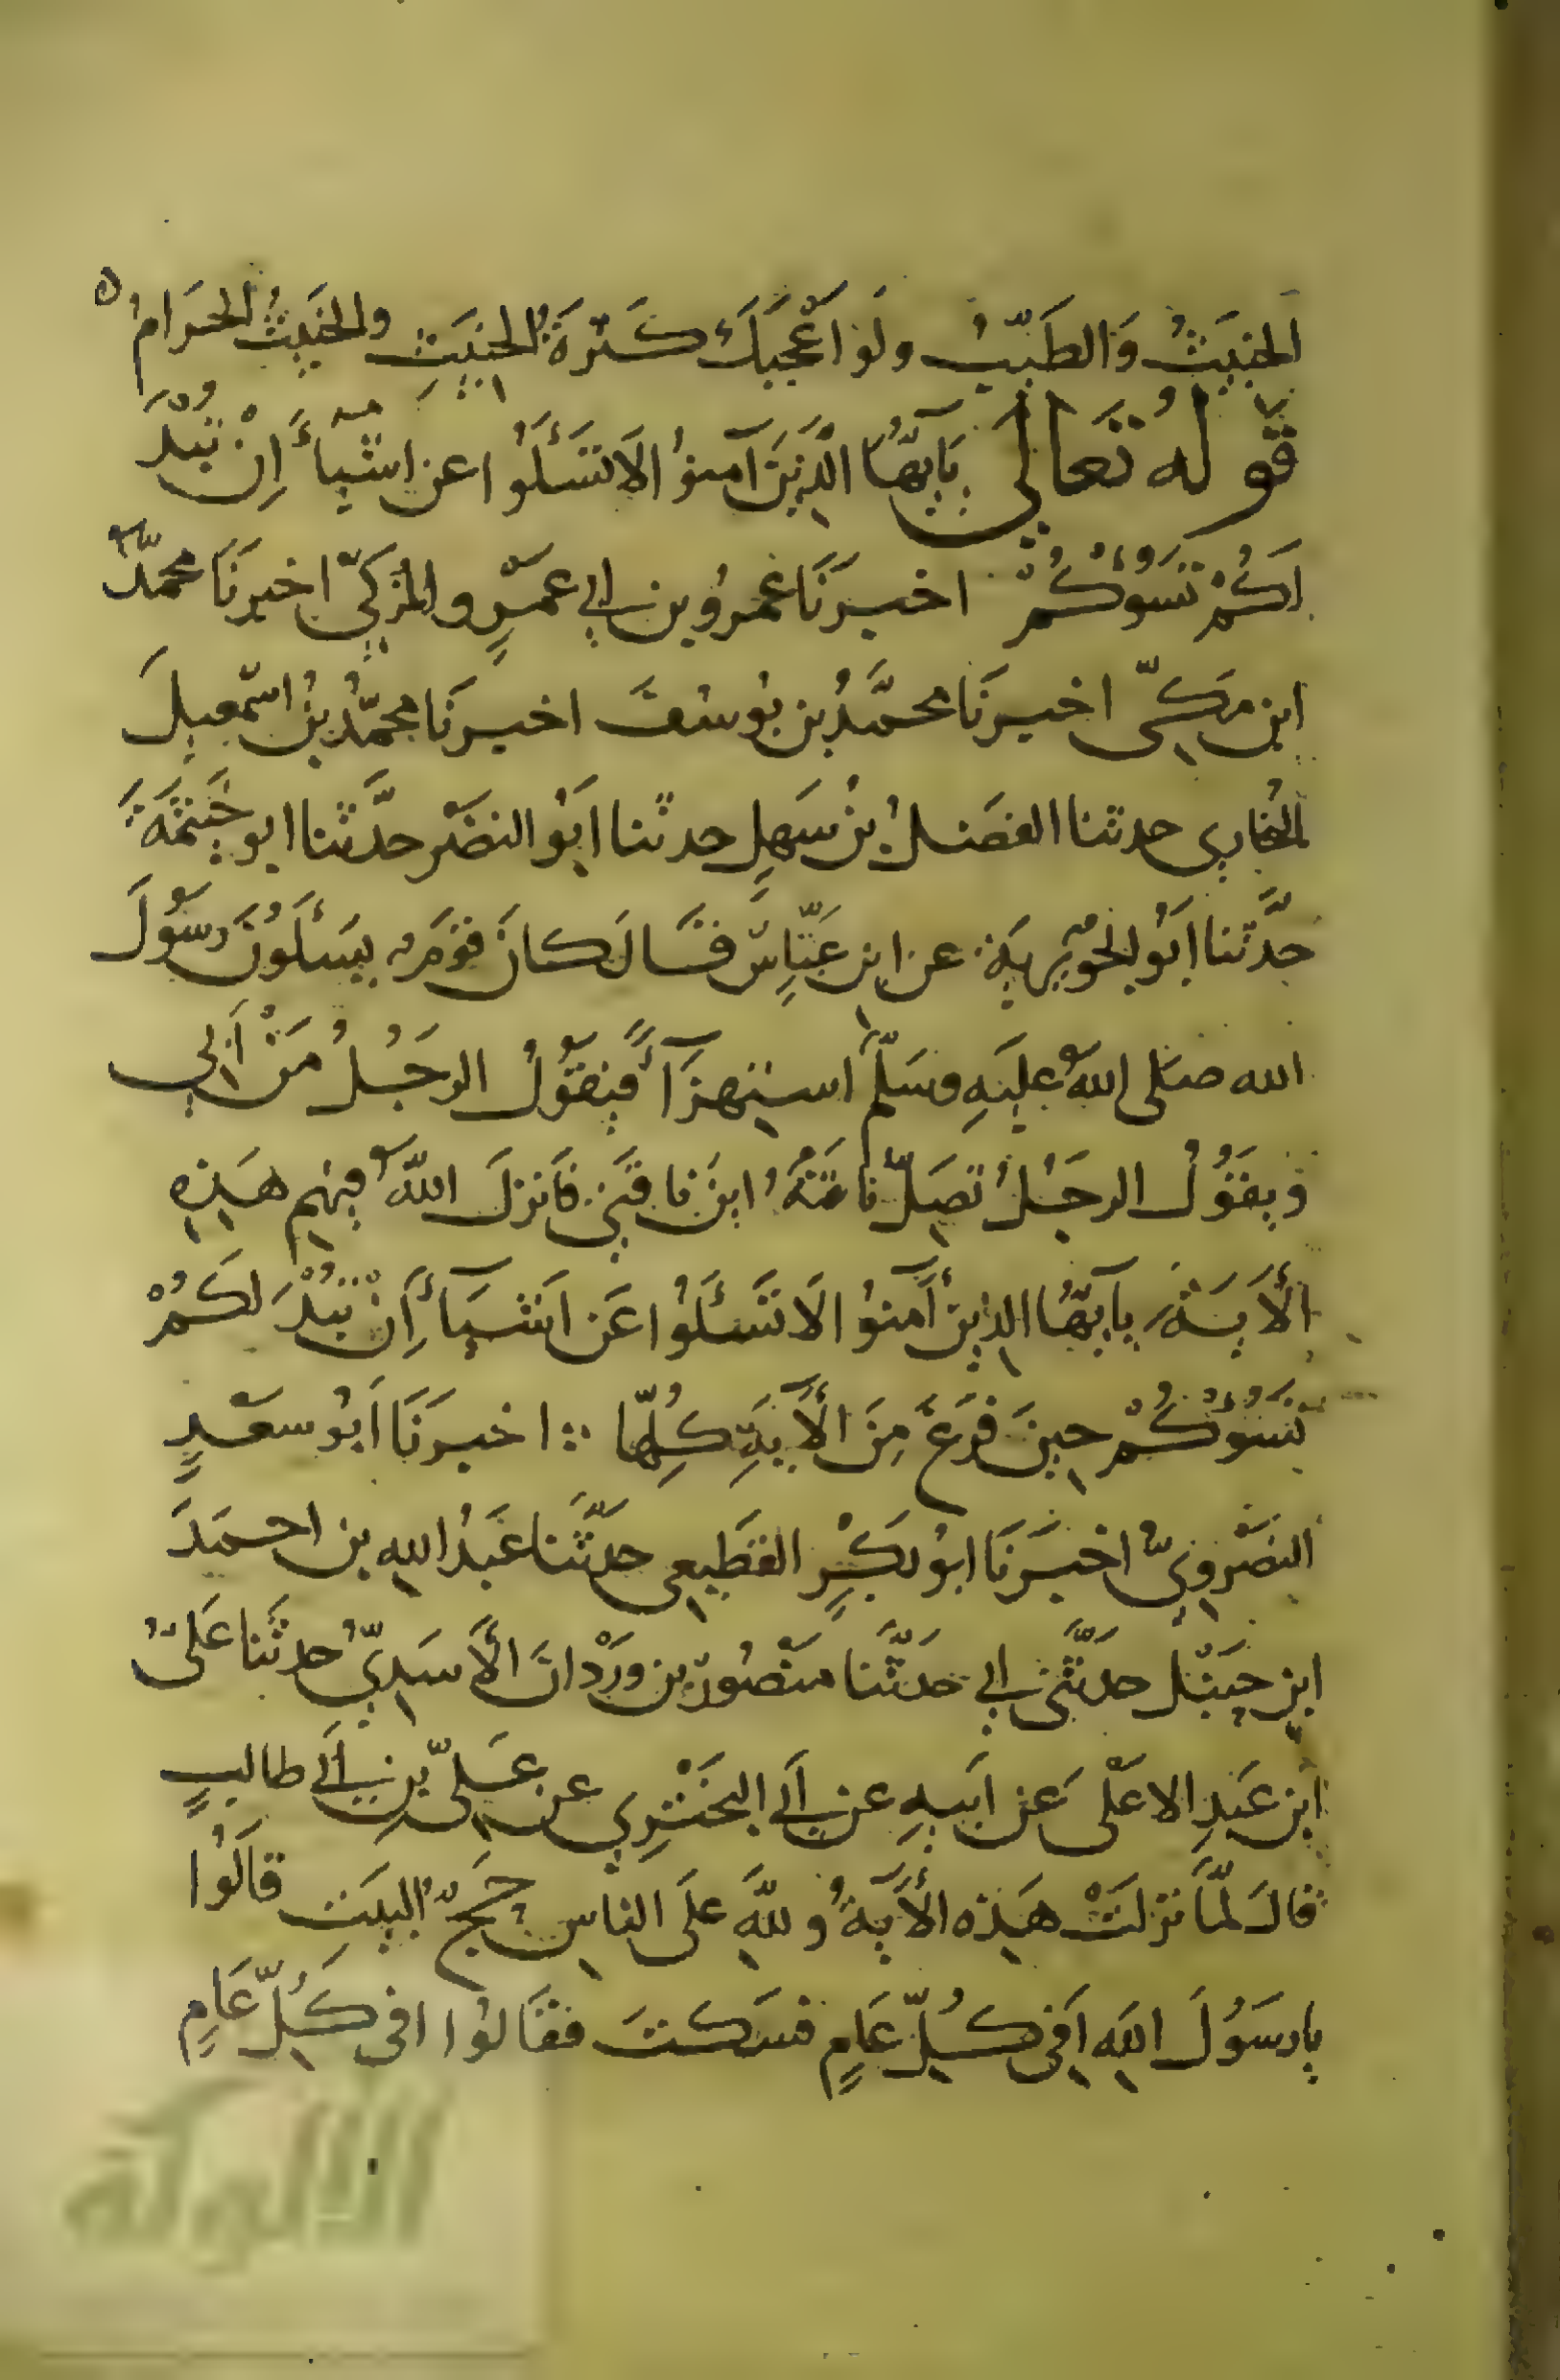 الخَبِيثُ وَالطَيّبُ ولَو اَعْجَبَكَ كَثْرَةُ الخَبِيثِ والخَبِيثُ الحَرَامُ ه
قَولُهُ تَعَالَى يَا يّهَا الَّذِينَ آمنُوا لاَ تَسْئَلُوا عن اشيَآءَ اِنْ تُبْدَ
لَكُمْ تَسُؤْكُمْ اخبرَنَا عَمرُو بن ابي عمْرٍو المُزَكِّيّ اخبرنَا محمدُ
ابن مَكيّ اخبرنَا محمَّدُ بن يُوسُفَ اخبرنَا محمَّدُ بنُ اسْمعِيلَ
البُخاري حدثنا الفَضلُ بنُ سَهلٍ حدثنا اَبُو النضْر حدَّثنا ابو خَيثمَةَ
حدَّثنا اَبُو الجُوَيْرِيَةِ عن ابن عَبّاسٍ قَالَ كانَ قَومٌ يَسئَلُونَ رسُولَ
الله صلى اللهُ عليَهِ وسَلّمَ استِهزَآءً فَيَقُولُ الرجُلُ مَنْ اَبي
وَيقُولُ الرجُلُ تَضِلّ نَاقَتُهُ ايْنَ نَاقَتِي فَاَنزلَ اللّهُ فِيهِم هَذِهِ
الأَيَةَ يا ايّهَا الذِينَ آمنُوا لاَ تَسْئَلُوا عَن اَشيَآءَ اِنْ تُبْدَ لَكُمْ
تَسُؤْكُمْ حِينَ فَرَغَ مِنَ الأَيَةِ كُلِّهَا ∴ اخبرَنَا اَبُو سَعْدٍ
النضْرَوِيّ اخبَرنَا ابُو بَكْرٍ القَطِيعِي حدَّثَنا عَبْدُ اللهِ بن احمَدَ
ابنِ حنبَل حدثَّني ابي حَدّثَنا مَنْصُورُ بن وَرْدَانَ الأَسَدِيّ حدثَنا عَليُّ
ابن عَبدِ الاعْلَى عَن اَبيهِ عن اَبي البَخْتَرِي عن عَليّ بن اَبي طالبٍ
قالَ لمَّا نزلَتْ هَذه الأَيَةُ وللّهِ علَى الناسِ حَجّ البيَتِ قَالُوا
يا رسُولَ اللهِ اَفي كُلّ عَامٍ فسَكتَ فقَالوُا افى كُلّ عَامٍ
الألوكة